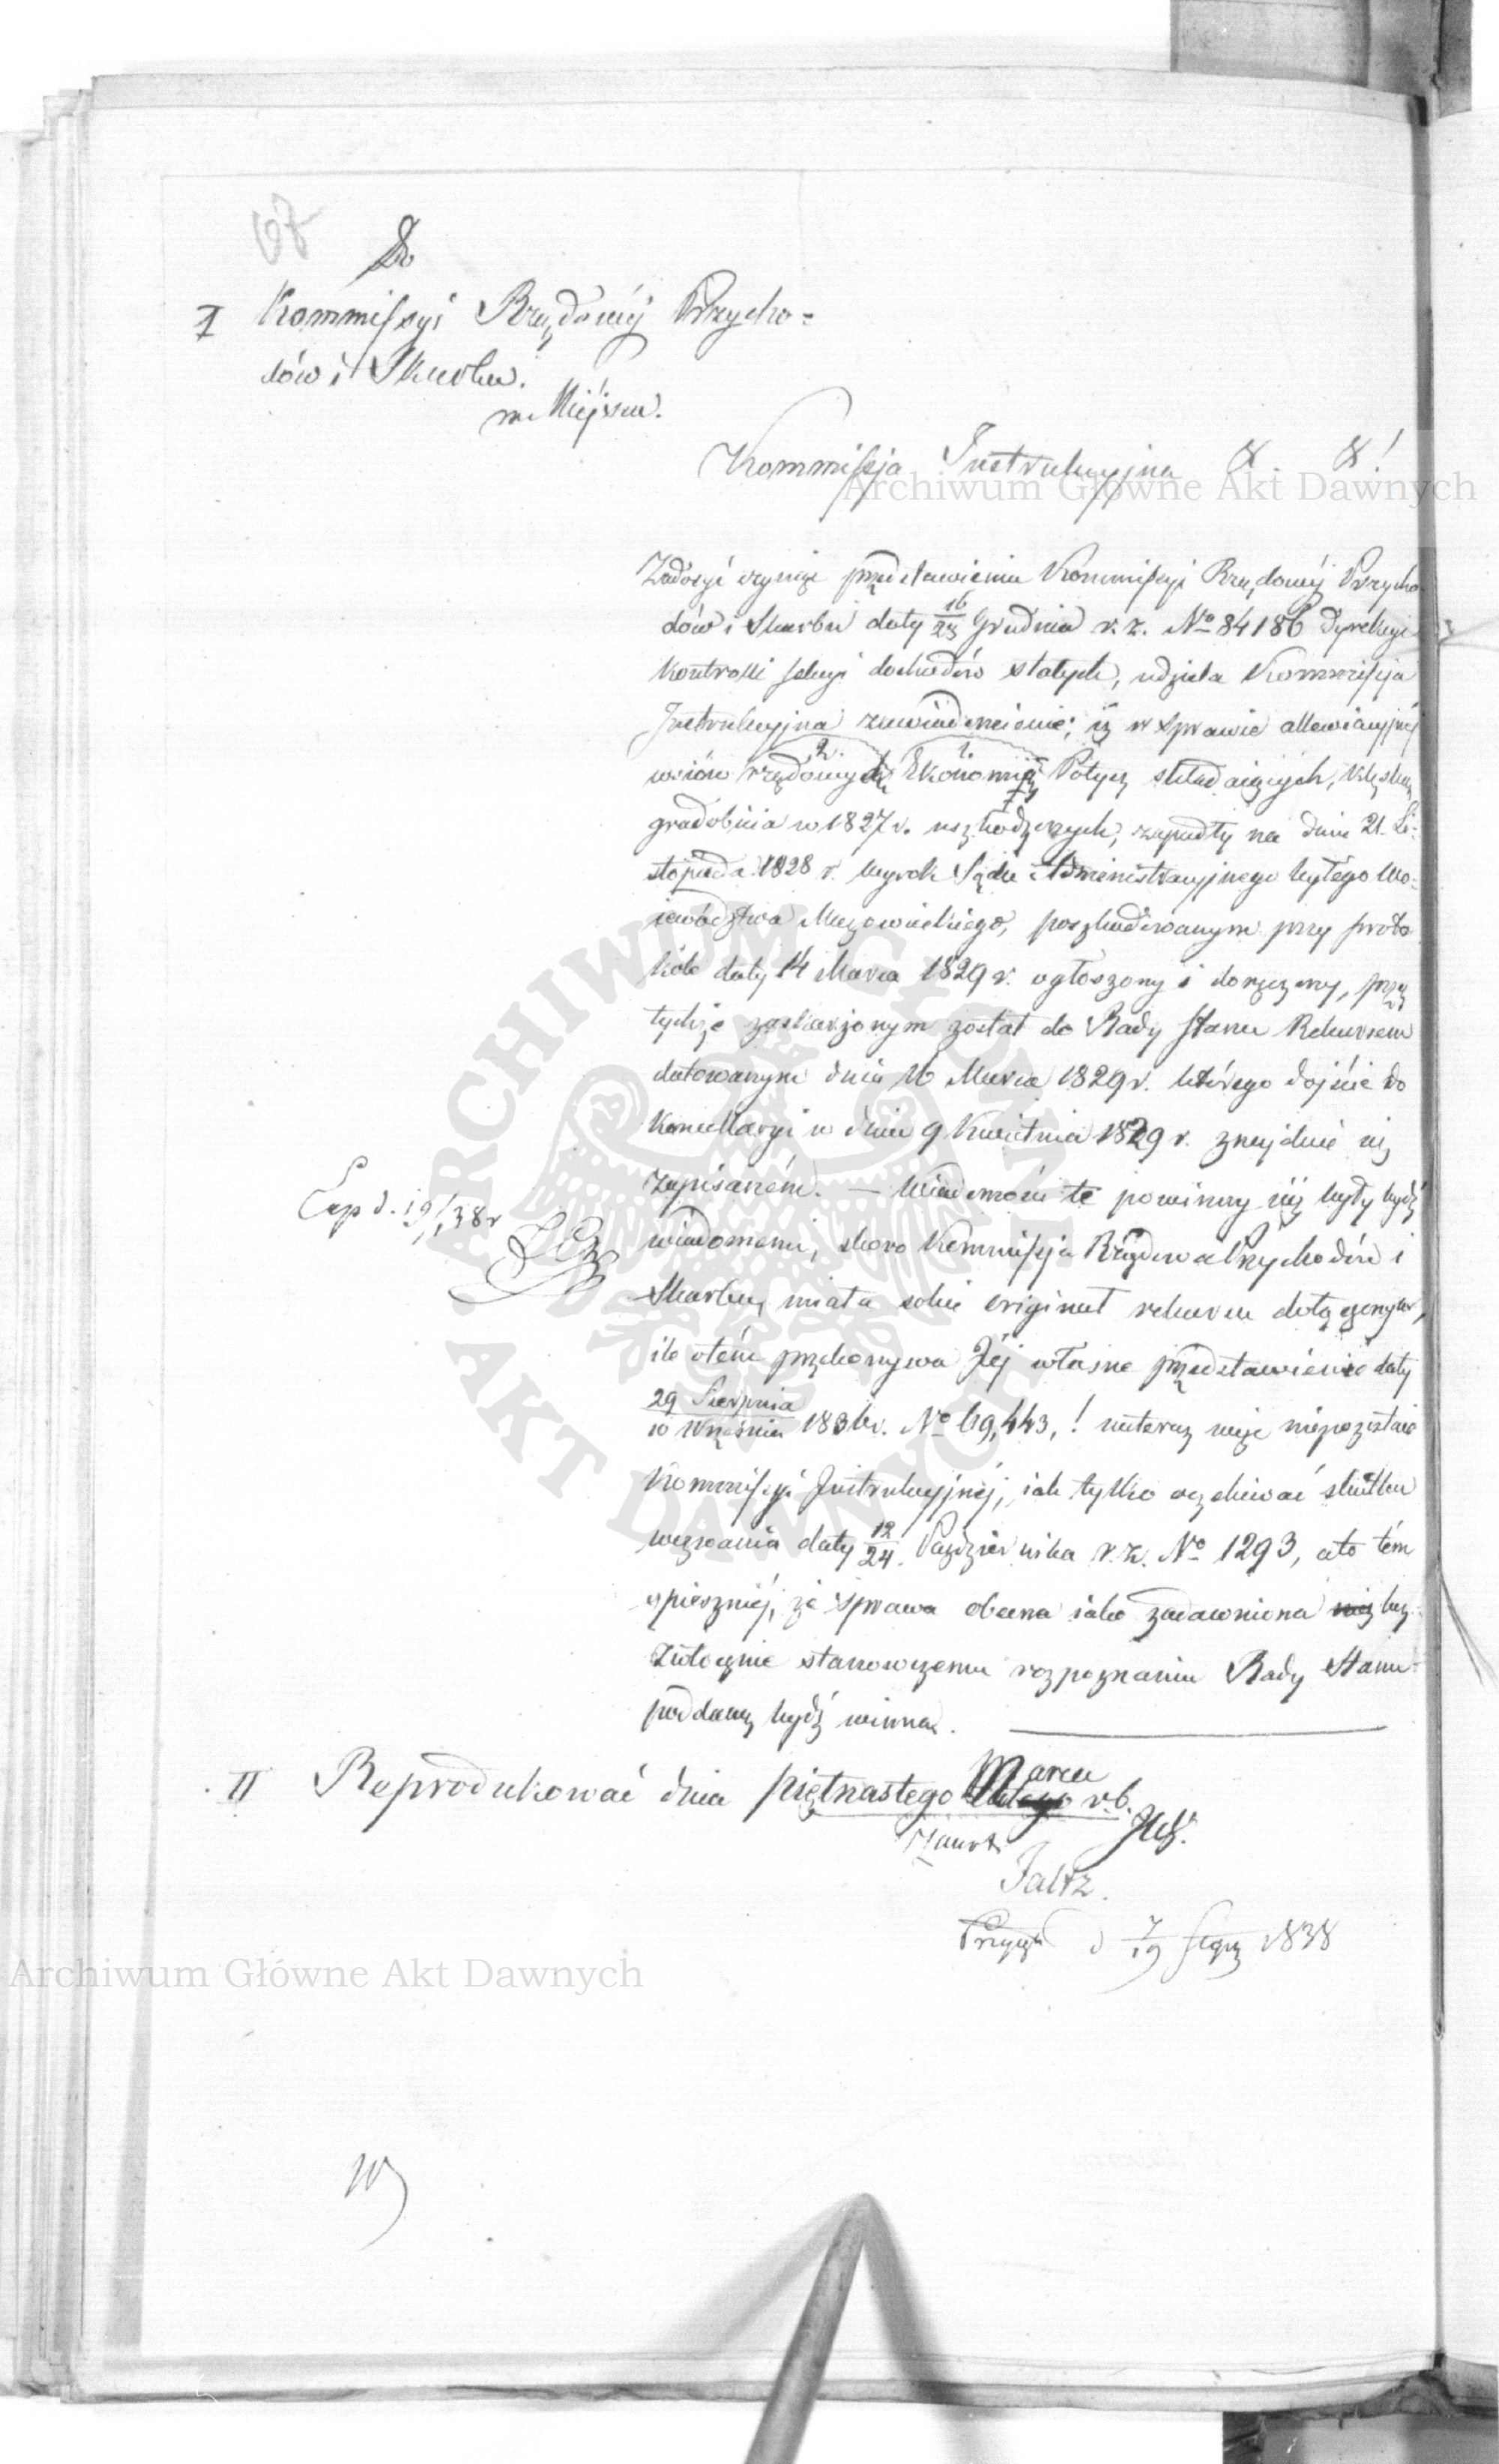 67
Do
I Kommissyi Rządowéj Przycho=
dów i Skarbu.
w Miéjscu.
Kommissja Instrukcyjna & &!
Archiwum Główne Akt Dawnych
Zadosyć czyniąc przedstawieniu Kommissyi Rządowéj Przycho
dów i Skarbu daty 16/28 Grudnia r. z. No 84186 Dyrekcyi
Kontrolli sekcyi dochodów stałych, udziela Kommissja
Instrukcyjna zawiadomienie; iż w sprawie allewiacyjnéj
wsiów rządowych 2. Ekonomią 1. Potycz składaiących, klęską
gradobicia w 1827 r. uszkodzonych, zapadły na dniu 21. Li=
stopada 1828 r. wyrok Sądu Administracyjnego byłego Wo=
jewództwa Mazowieckiego, poszkodowanym przy proto
kóle daty 14 Marca 1829 r. ogłoszony i doręczony, przez
tychże zaskarżonym został do Rady Stanu Rekursem
datowanym dnia 16 Marca 1829 r. którego dojście do
Kancellaryi w dniu 9 Kwietnia 1829 r. znajduie się
zapisaném. — Wiadomości te powinny jéj były bydź
Exp d. 19/1 38 r
wiadomemi, skoro Kommissja Rządowa Przychodów i
Skarbu, miała sobie oryginał rekursu dołączonym,
ile o tém przekonywa Jéj własne przedstawienie daty
29 Sierpnia/10 Września 1836 r. No 69,443,! nateraz więc niepozostaie
Kommissyi Instrukcyjnéj, iak tylko oczekiwać skutku
wezwania daty 12/24. Października r. z. No 1293, a to tém
śpieszniéj, że sprawa obecna iako zadawniona bez=
zwłocznie stanowczemu rozpoznaniu Rady Stanu
poddaną bydź winna.
II Reprodukować dnia piętnastego Marca r. b.
Faltz.
d 7/19 Stycz 1838
Archiwum Główne Akt Dawnych
ARCHIWUM GŁÓWNE AKT DAWNYCH